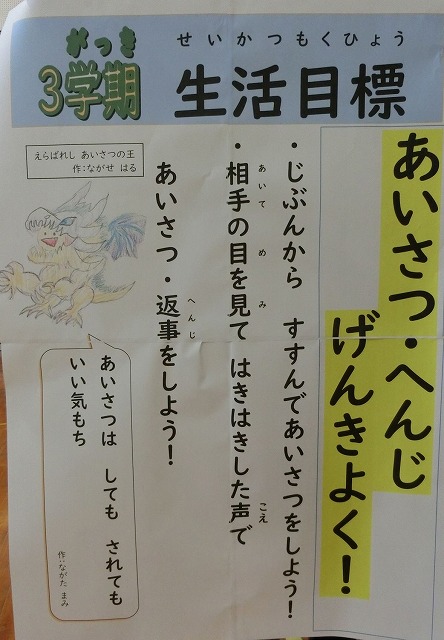 がっき
3学期
せいかつもくひょう
生活目標
あいさつ・へんじ
げんきよく!
・じぶんから すすんであいさつをしよう!
あいて め み
・相手の目を見て はきはきした声で
こえ
へんじ
あいさつ・返事をしよう!
えらばれし あいさつの王
作:ながせ はる
あいさつは しても されても
いい気もち
作:ながた まみ